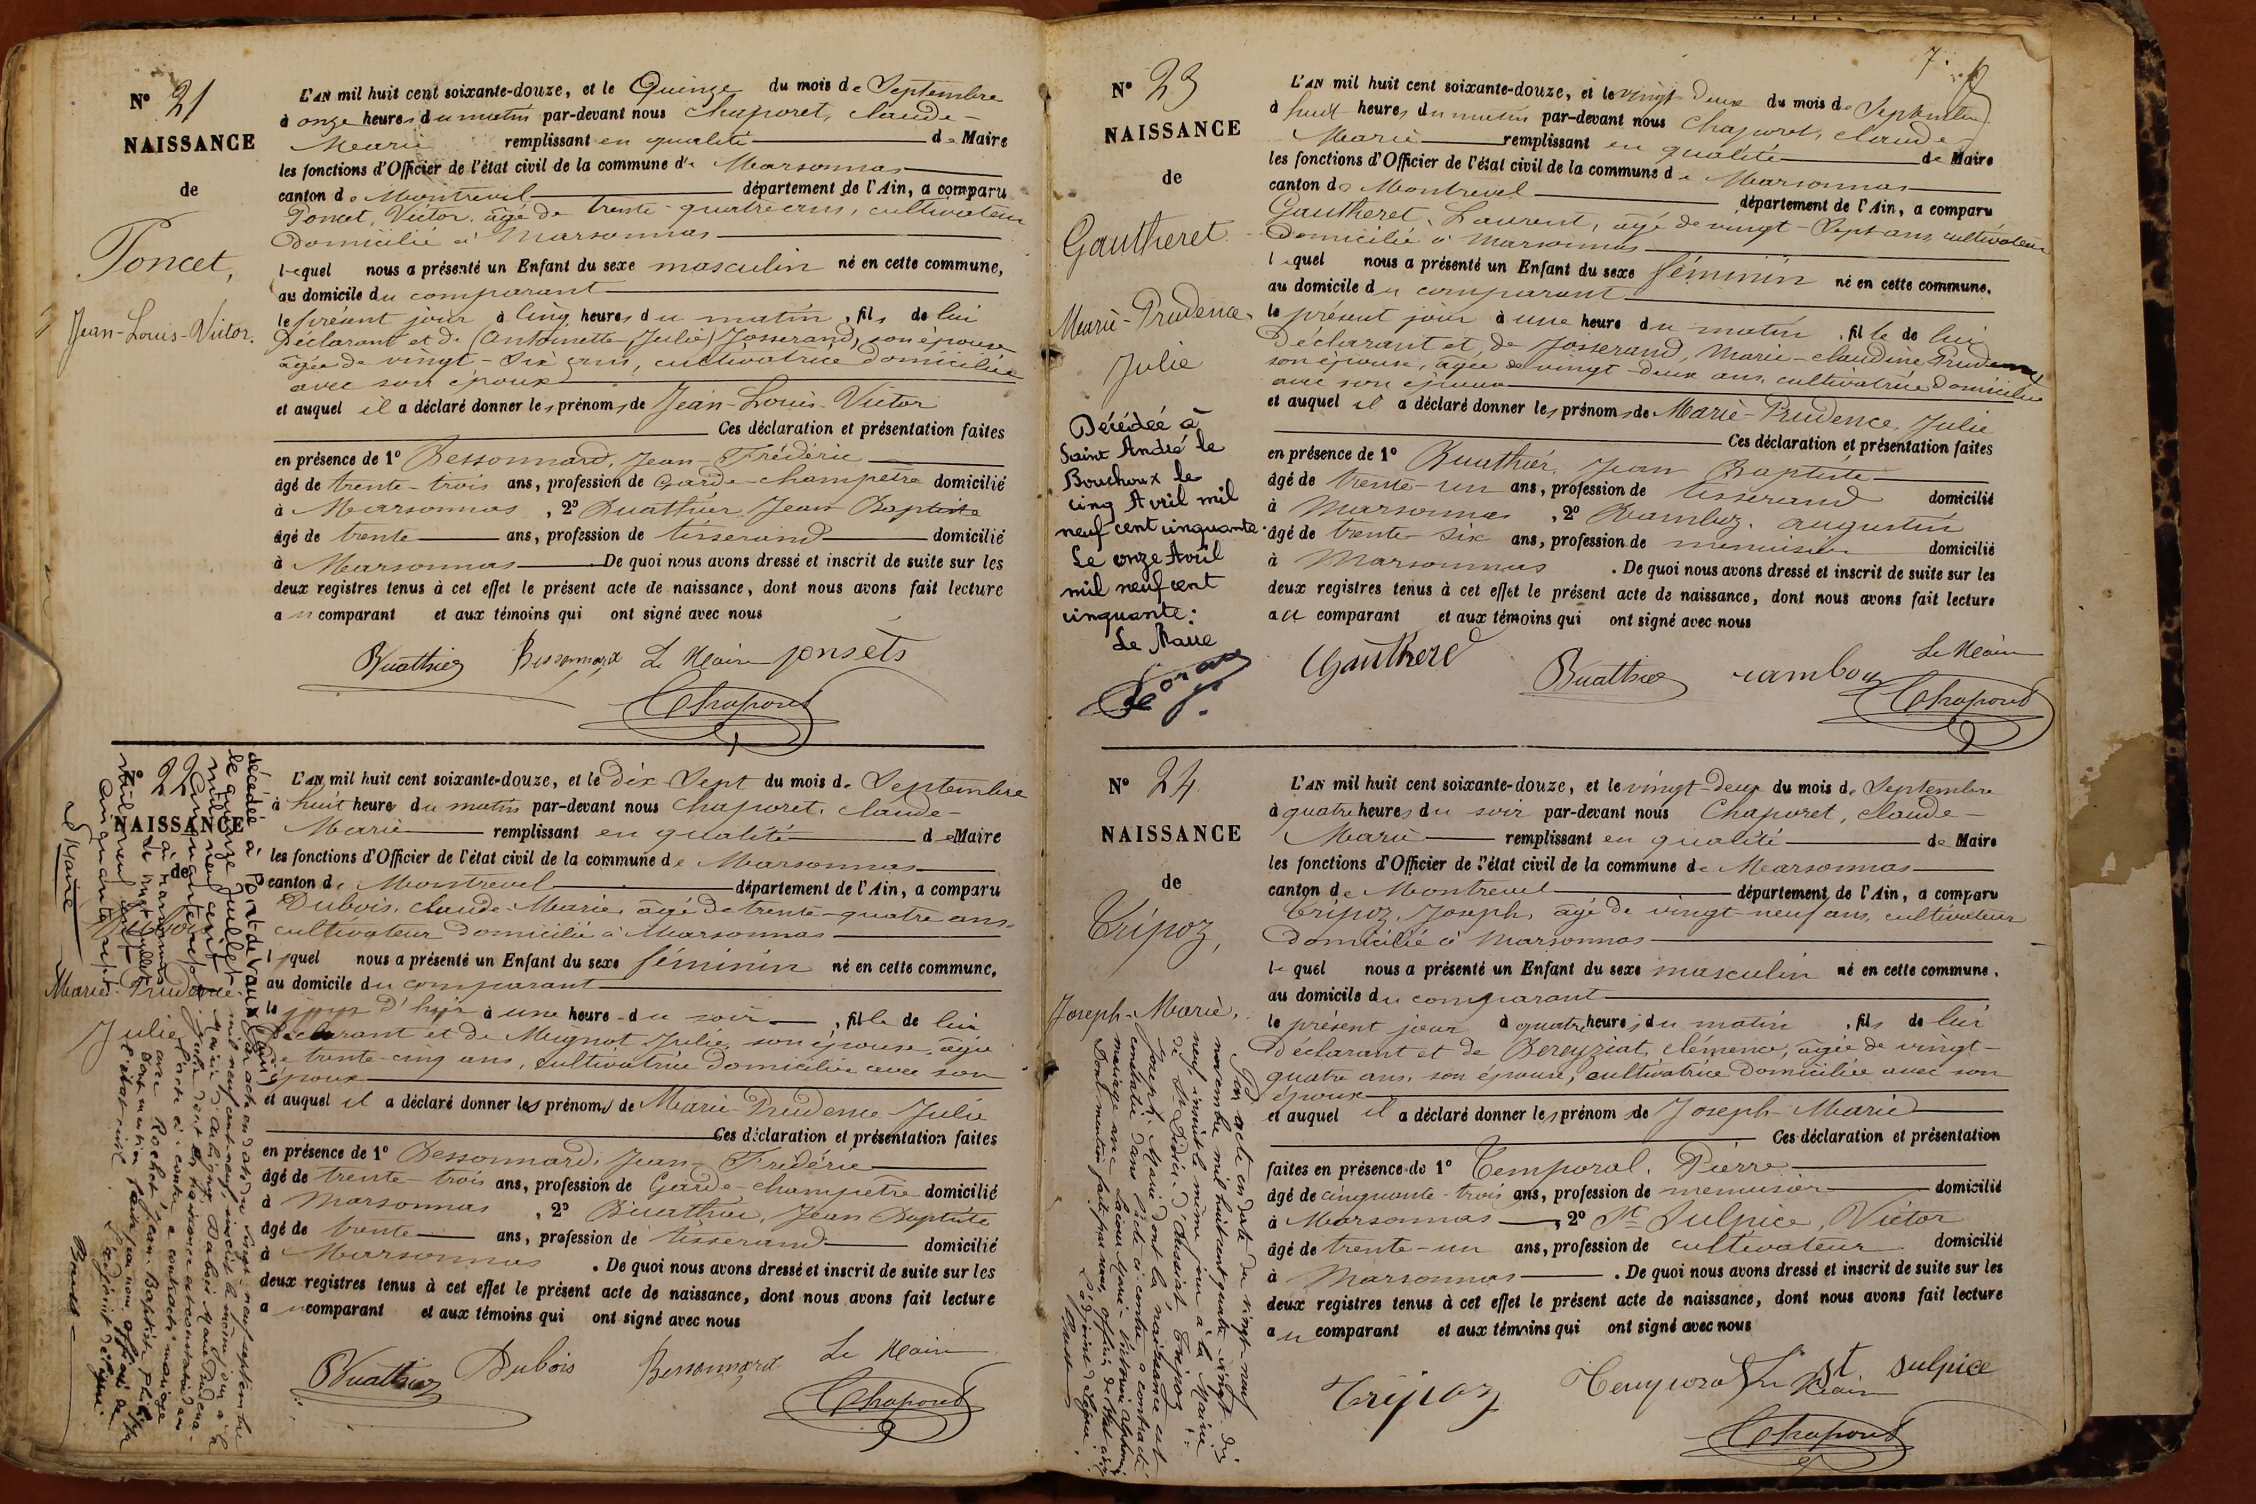 N° 21
NAISSANCE
de
Poncet,
Jean-Louis-Victor.
L'AN mil huit cent soixante-douze, et le Quinze du mois de Septembre
à onze heures du matin par-devant nous Chaporet, claude-
Marie remplissant en qualité de Maire
les fonctions d'Officier de l'état civil de la commune de Marsonnas
canton de Montrevel département de l'Ain, a comparu
Poncet, Victor, âgé de trente-quatre ans, cultivateur
Domicilié à Marsonnas
lequel nous a présenté un Enfant du sexe masculin né en cette commune,
au domicile du comparant
le présent jour à cinq heures du matin, fils de lui
Déclarant et de (Antoinette Julie) Josserand, son épouse
âgée de vingt-six ans, cultivatrice domiciliée
avec son époux
et auquel il a déclaré donner les prénoms de Jean-Louis-Victor
Ces déclaration et présentation faites
en présence de 1° Bessonnard, Jean-Frédéric
âgé de trente-trois ans, profession de Garde-champêtre domicilié
à Marsonnas, 2° Buathier Jean Baptiste
âgé de trente ans, profession de tisserand domicilié
à Marsonnas De quoi nous avons dressé et inscrit de suite sur les
deux registres tenus à cet effet le présent acte de naissance, dont nous avons fait lecture
au comparant et aux témoins qui ont signé avec nous
Buathier Bessonnard Le Maire ponsets
Chaporet
N° 22
NAISSANCE
de
Dubois
Marie-Prudence
Julie
L'AN mil huit cent soixante-douze, et le dix Sept du mois de Septembre
à huit heure du matin par-devant nous Chaporet, claude-
Marie remplissant en qualité de Maire
les fonctions d'Officier de l'état civil de la commune de Marsonnas
canton de Montrevel département de l'Ain, a comparu
Dubois, claude-Marie, âgé de trente-quatre ans
cultivateur domicilié à Marsonnas
lequel nous a présenté un Enfant du sexe féminin né en cette commune,
au domicile du comparant
le jour d'hier à une heure du soir, fille de lui
Déclarant et de Mignot Julie, son épouse, âgée
de trente-cinq ans, cultivatrice domiciliée avec son
époux
et auquel il a déclaré donner les prénoms de Marie-Prudence-Julie
Ces déclaration et présentation faites
en présence de 1° Bessonnard, Jean-Frédéric
âgé de trente-trois ans, profession de Garde-champêtre domicilié
à Marsonnas, 2° Buathier, Jean Baptiste
âgé de trente ans, profession de tisserand domicilié
à Marsonnas. De quoi nous avons dressé et inscrit de suite sur les
deux registres tenus à cet effet le présent acte de naissance, dont nous avons fait lecture
au comparant et aux témoins qui ont signé avec nous
Buathier Dubois Bessonnard Le Maire
Chaporet
décédée à Pont de Vaux (Ain)
le quinze Juillet
mil neuf cent
cinquante sept
à Marsonnas
le vingt Juillet
mil neuf cent
cinquante sept
Le Maire
7.
N° 23
NAISSANCE
de
Gautheret
Marie-Prudence,
Julie
Décédée à
Saint André le
Bouchoux le
cinq Avril mil
neuf cent cinquante.
Le onze Avril
mil neuf cent
cinquante:
Le Maire
L'AN mil huit cent soixante-douze, et le vingt-deux du mois de Septembre
à huit heures du matin par-devant nous Chaporet, claude
Marie remplissant en qualité de Maire
les fonctions d'Officier de l'état civil de la commune de Marsonnas
canton de Montrevel département de l'Ain, a comparu
Gautheret, Laurent, âgé de vingt-Sept ans, cultivateur
Domicilié à Marsonnas
lequel nous a présenté un Enfant du sexe féminin né en cette commune.
au domicile du comparant
le présent jour à une heure du matin, fille de lui
Déclarant et de Josserand, Marie-claudine Prudence
son épouse, âgée de vingt-deux ans, cultivatrice domiciliée
avec son époux
et auquel il a déclaré donner les prénoms de Marie-Prudence, Julie
Ces déclaration et présentation faites
en présence de 1° Buathier, Jean Baptiste
âgé de trente-un ans, profession de tisserand domicilié
à Marsonnas, 2° Ramboz, augustin
âgé de trente-six ans, profession de menuisier domicilié
à Marsonnas. De quoi nous avons dressé et inscrit de suite sur les
deux registres tenus à cet effet le présent acte de naissance, dont nous avons fait lecture
au comparant et aux témoins qui ont signé avec nous
Gautheret Buathier ramboz Le Maire
Chaporet
N° 24
NAISSANCE
de
Tripoz,
Joseph-Marie,
L'AN mil huit cent soixante-douze, et le vingt-deux du mois de Septembre
à quatre heures du soir par-devant nous Chaporet, claude-
Marie remplissant en qualité de Maire
les fonctions d'Officier de l'état civil de la commune de Marsonnas
canton de Montrevel département de l'Ain, a comparu
Tripoz, Joseph, âgé de vingt-neuf ans, cultivateur
Domicilié à Marsonnas
lequel nous a présenté un Enfant du sexe masculin né en cette commune.
au domicile du comparant
le présent jour à quatre heures du matin, fils de lui
Déclarant et de Bereyziat, clémence, âgée de vingt-
quatre ans, son épouse, cultivatrice domiciliée avec son
époux
et auquel il a déclaré donner les prénoms de Joseph-Marie
Ces déclaration et présentation
faites en présence de 1° Temporal, Pierre
âgé de cinquante-trois ans, profession de menuisier domicilié
à Marsonnas, 2° St Sulpice, Victor
âgé de trente-un ans, profession de cultivateur domicilié
à Marsonnas. De quoi nous avons dressé et inscrit de suite sur les
deux registres tenus à cet effet le présent acte de naissance, dont nous avons fait lecture
au comparant et aux témoins qui ont signé avec nous
Tripoz Temporal St Sulpice
Le Maire
Chaporet
Par acte en date du vingt-neuf
novembre mil huit cent quatre-vingt-dix
neuf, inscrit le même jour à la Mairie
de St Didier d'Aussiat, Tripoz
Joseph-Marie dont la naissance est
constatée dans l'acte ci-contre a contracté
mariage avec
Dont mention faite par nous, officier de l'état civil